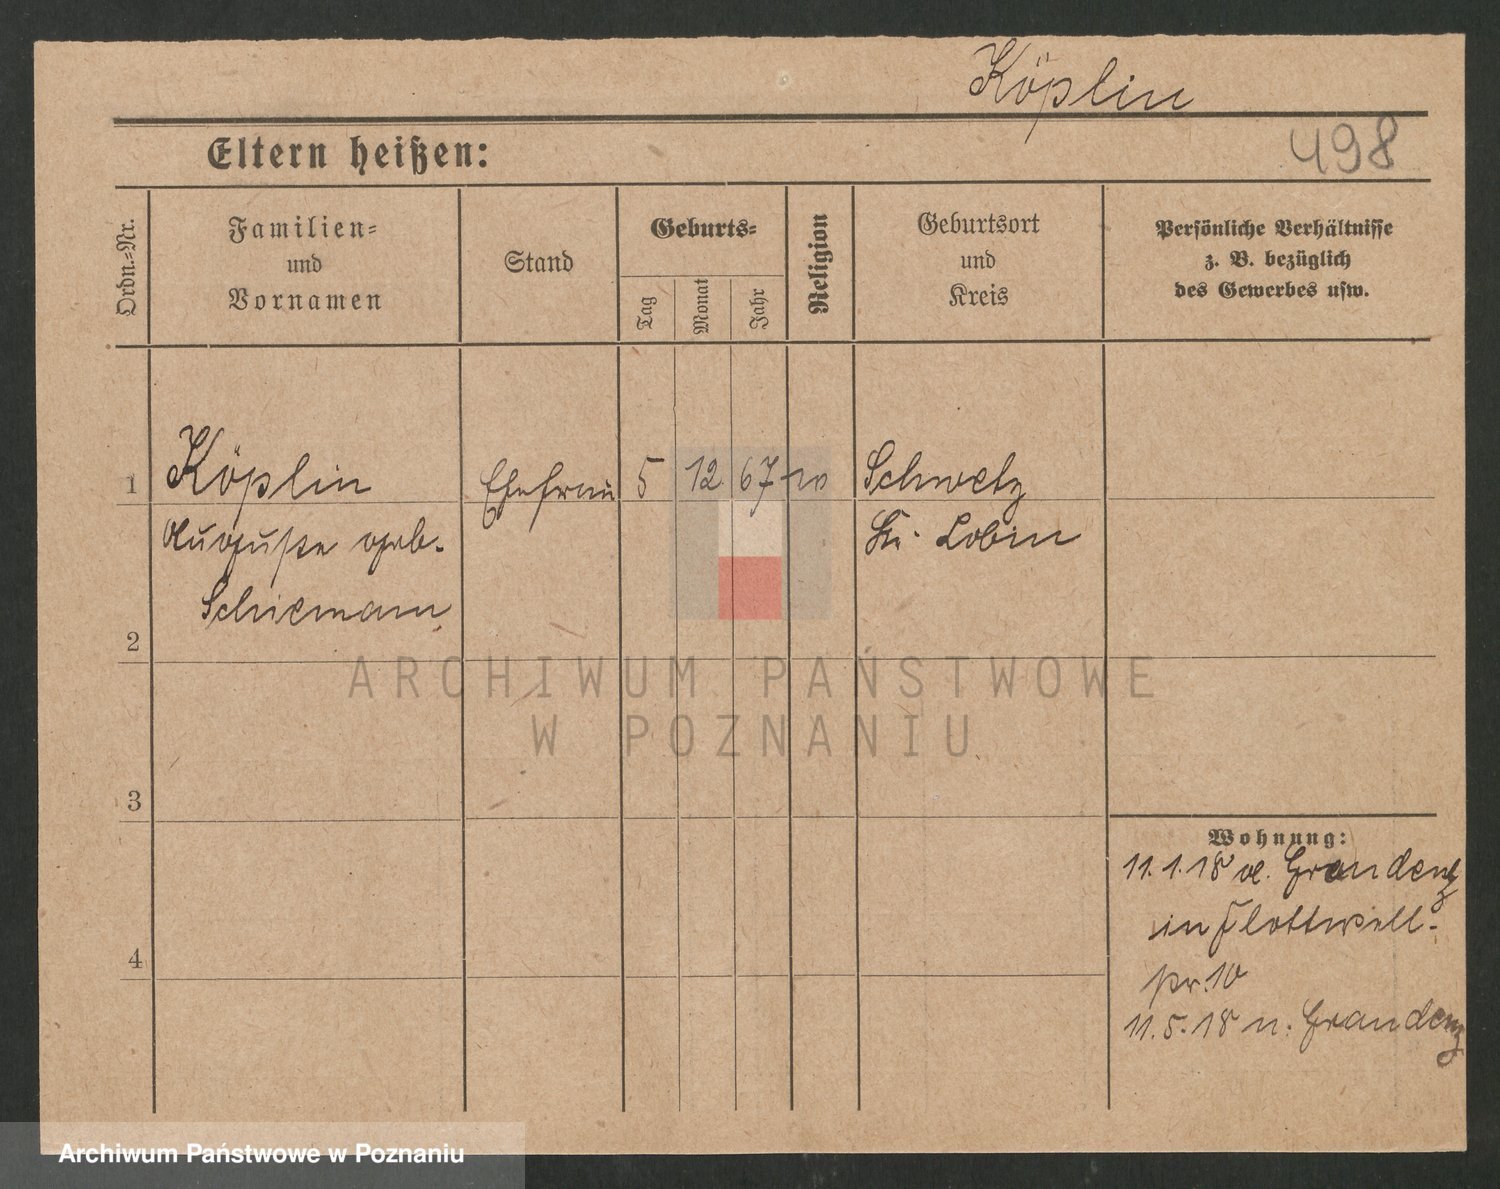 Köplin
498
Eltern heißen:
Ordn.-Nr.
Familien-
und
Vornamen
Stand
Geburts-
Tag
Monat
Jahr
Religion
Geburtsort
und
Kreis
Persönliche Verhältnisse
z. B. bezüglich
des Gewerbes usw.
1 Köplin Ehefrau 5 12 67 Schwetz
Auguste geb. Kr. Lobin
Schiemann
2
3
4
Wohnung:
11.1.18 Graudenz
in Flottwell-
pr. 10
11.5.18 n. Graudenz
ARCHIWUM PAŃSTWOWE
W POZNANIU
Archiwum Państwowe w Poznaniu